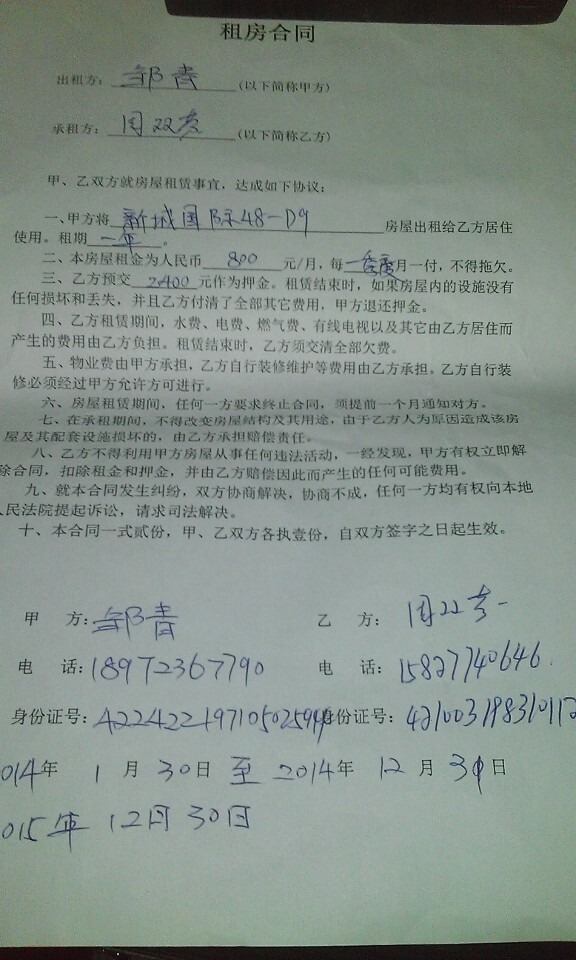 租房合同
出租方：邹青（以下简称甲方）
承租方：周双（以下简称乙方）
甲、乙双方就房屋租赁事宜，达成如下协议：
一、甲方将 新城国际48-D9 房屋出租给乙方居住
使用。租期 一年 。
二、本房屋租金为人民币 800 元/月，每 一季度 月一付，不得拖欠。
三、乙方预交 2400 元作为押金。租赁结束时，如果房屋内的设施没有
任何损坏和丢失，并且乙方付清了全部其它费用，甲方退还押金。
四、乙方租赁期间，水费、电费、燃气费、有线电视以及其它由乙方居住而
产生的费用由乙方负担。租赁结束时，乙方须交清全部欠费。
五、物业费由甲方承担，乙方自行装修维护等费用由乙方承担。乙方自行装
修必须经过甲方允许方可进行。
六、房屋租赁期间，任何一方要求终止合同，须提前一个月通知对方。
七、在承租期间，不得改变房屋结构及其用途，由于乙方人为原因造成该房
屋及其配套设施损坏的，由乙方承担赔偿责任。
八、乙方不得利用甲方房屋从事任何违法活动，一经发现，甲方有权立即解
除合同，扣除租金和押金，并由乙方赔偿因此而产生的任何可能费用。
九、就本合同发生纠纷，双方协商解决，协商不成，任何一方均有权向本地
人民法院提起诉讼，请求司法解决。
十、本合同一式贰份，甲、乙双方各执壹份，自双方签字之日起生效。
甲 方：邹青 乙 方：周双
电 话：18972367790 电 话：15827740646
身份证号：422422197105025944 身份证号：42100319831011
014年 1月30日至2014年12月31日
015年12月30日